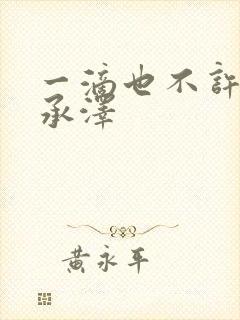 一滴也不許
承澤
黃永平